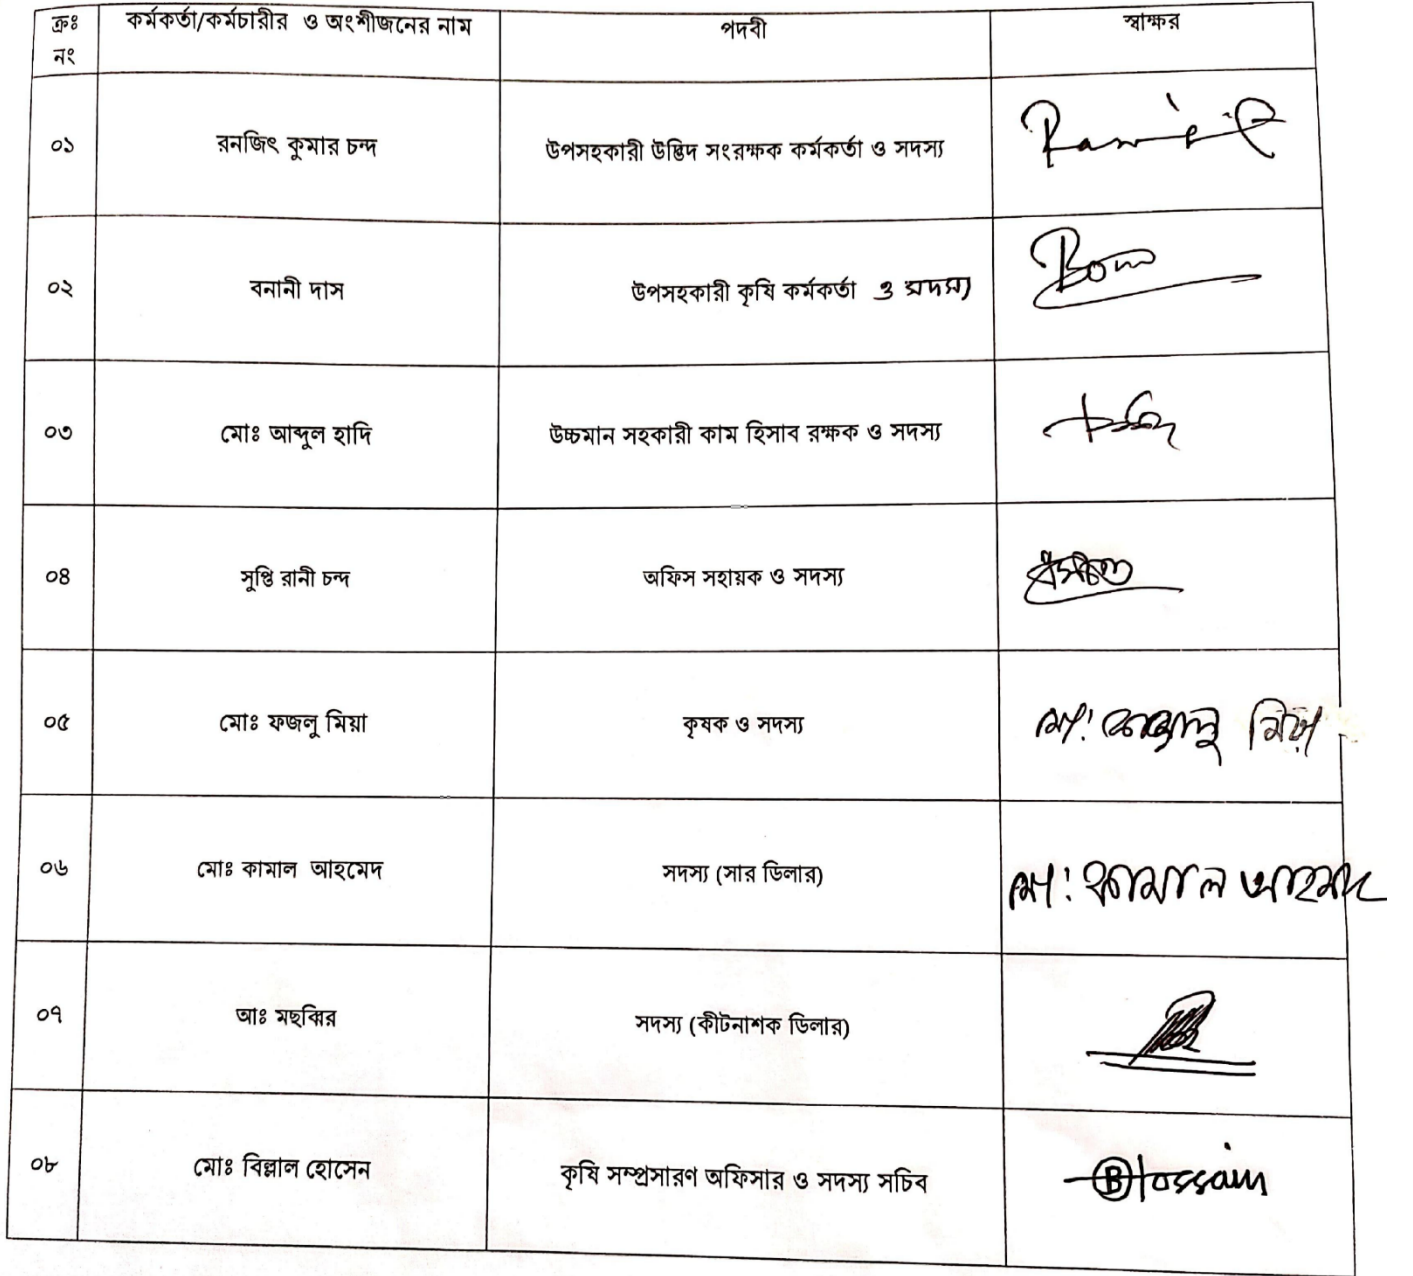 ক্রঃ নং কর্মকর্তা/কর্মচারীর ও অংশীজনের নাম পদবী স্বাক্ষর
০১ রনজিৎ কুমার চন্দ উপসহকারী উদ্ভিদ সংরক্ষক কর্মকর্তা ও সদস্য
০২ বনানী দাস উপসহকারী কৃষি কর্মকর্তা ও সদস্য
০৩ মোঃ আব্দুল হাদি উচ্চমান সহকারী কাম হিসাব রক্ষক ও সদস্য
০৪ সুপ্তি রানী চন্দ অফিস সহায়ক ও সদস্য
০৫ মোঃ ফজলু মিয়া কৃষক ও সদস্য মো: ফজলু মিয়া
০৬ মোঃ কামাল আহমেদ সদস্য (সার ডিলার) মো: কামাল আহমদ
০৭ আঃ মছব্বির সদস্য (কীটনাশক ডিলার)
০৮ মোঃ বিল্লাল হোসেন কৃষি সম্প্রসারণ অফিসার ও সদস্য সচিব BHossain